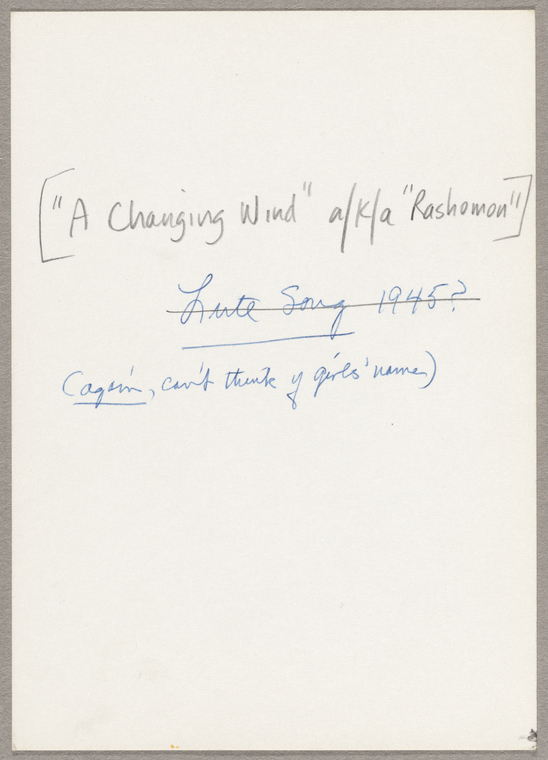 ["A Changing Wind" a/k/a "Rashomon"]
Lute Song 1945?
(again, can't think of girls' names)